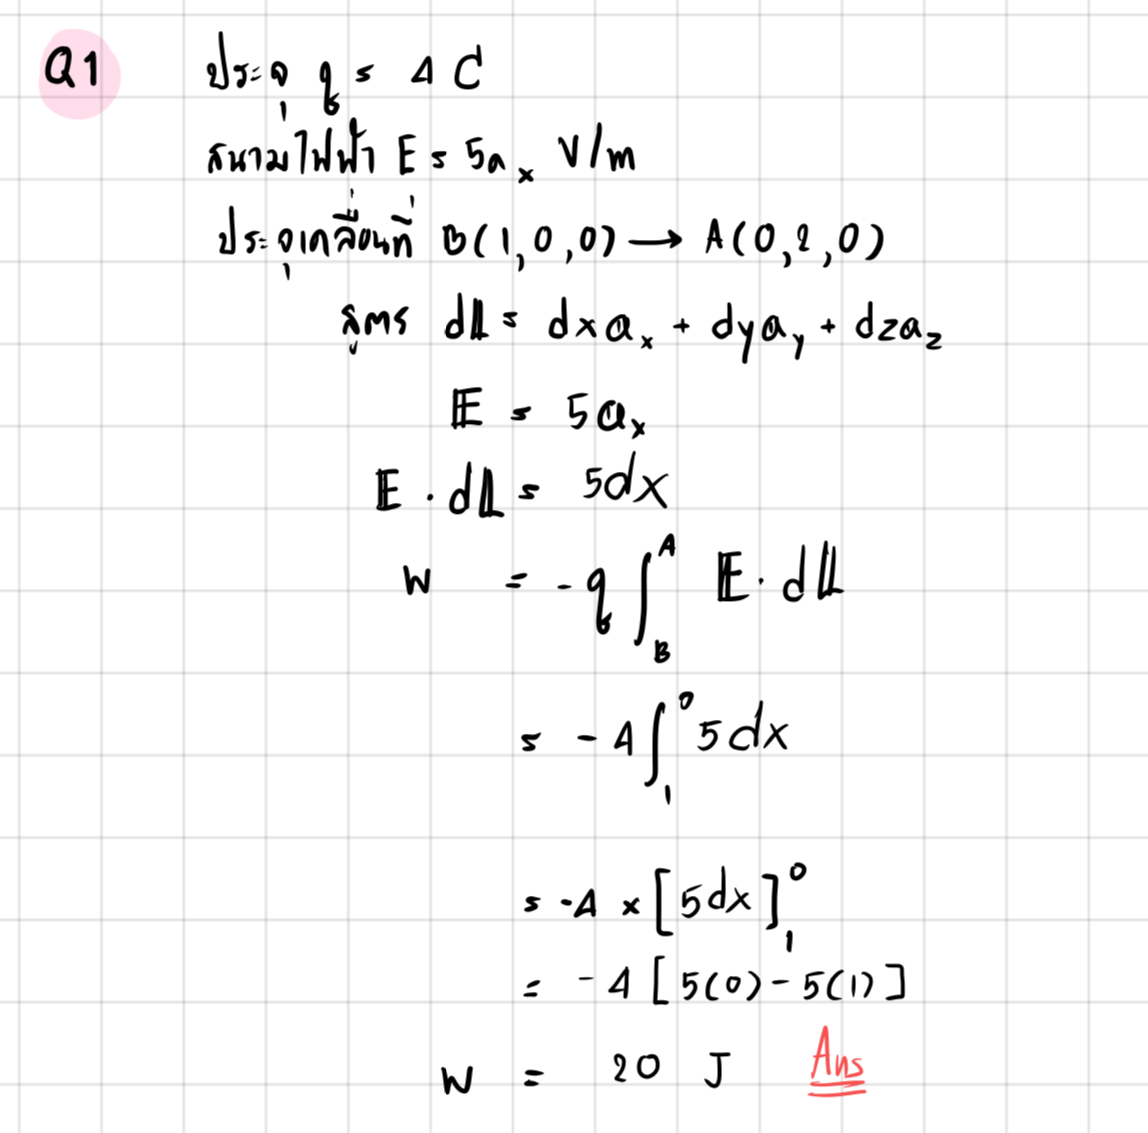 Q1 ประจุ q = 4 C
สนามไฟฟ้า E = 5a_x V/m
ประจุเคลื่อนที่ B(1,0,0) → A(0,2,0)
สูตร dL = dxa_x + dya_y + dza_z
E = 5a_x
E · dL = 5dx
W = -q ∫_B^A E · dL
= -4 ∫_1^0 5dx
= -4 × [5dx]_1^0
= -4 [5(0) - 5(1)]
W = 20 J Ans